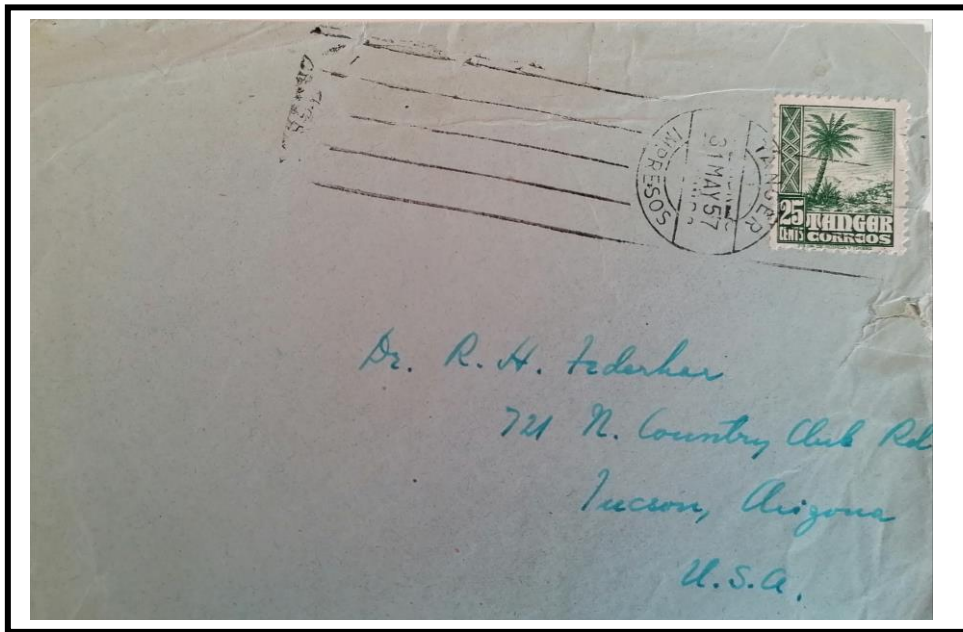 TANGER
31 MAY 57
IMPRESOS
25
CENTS
TANGER
CORREOS
Dr. R. H. Federhar
721 N. Country Club Rd
Tucson, Arizona
U.S.A.